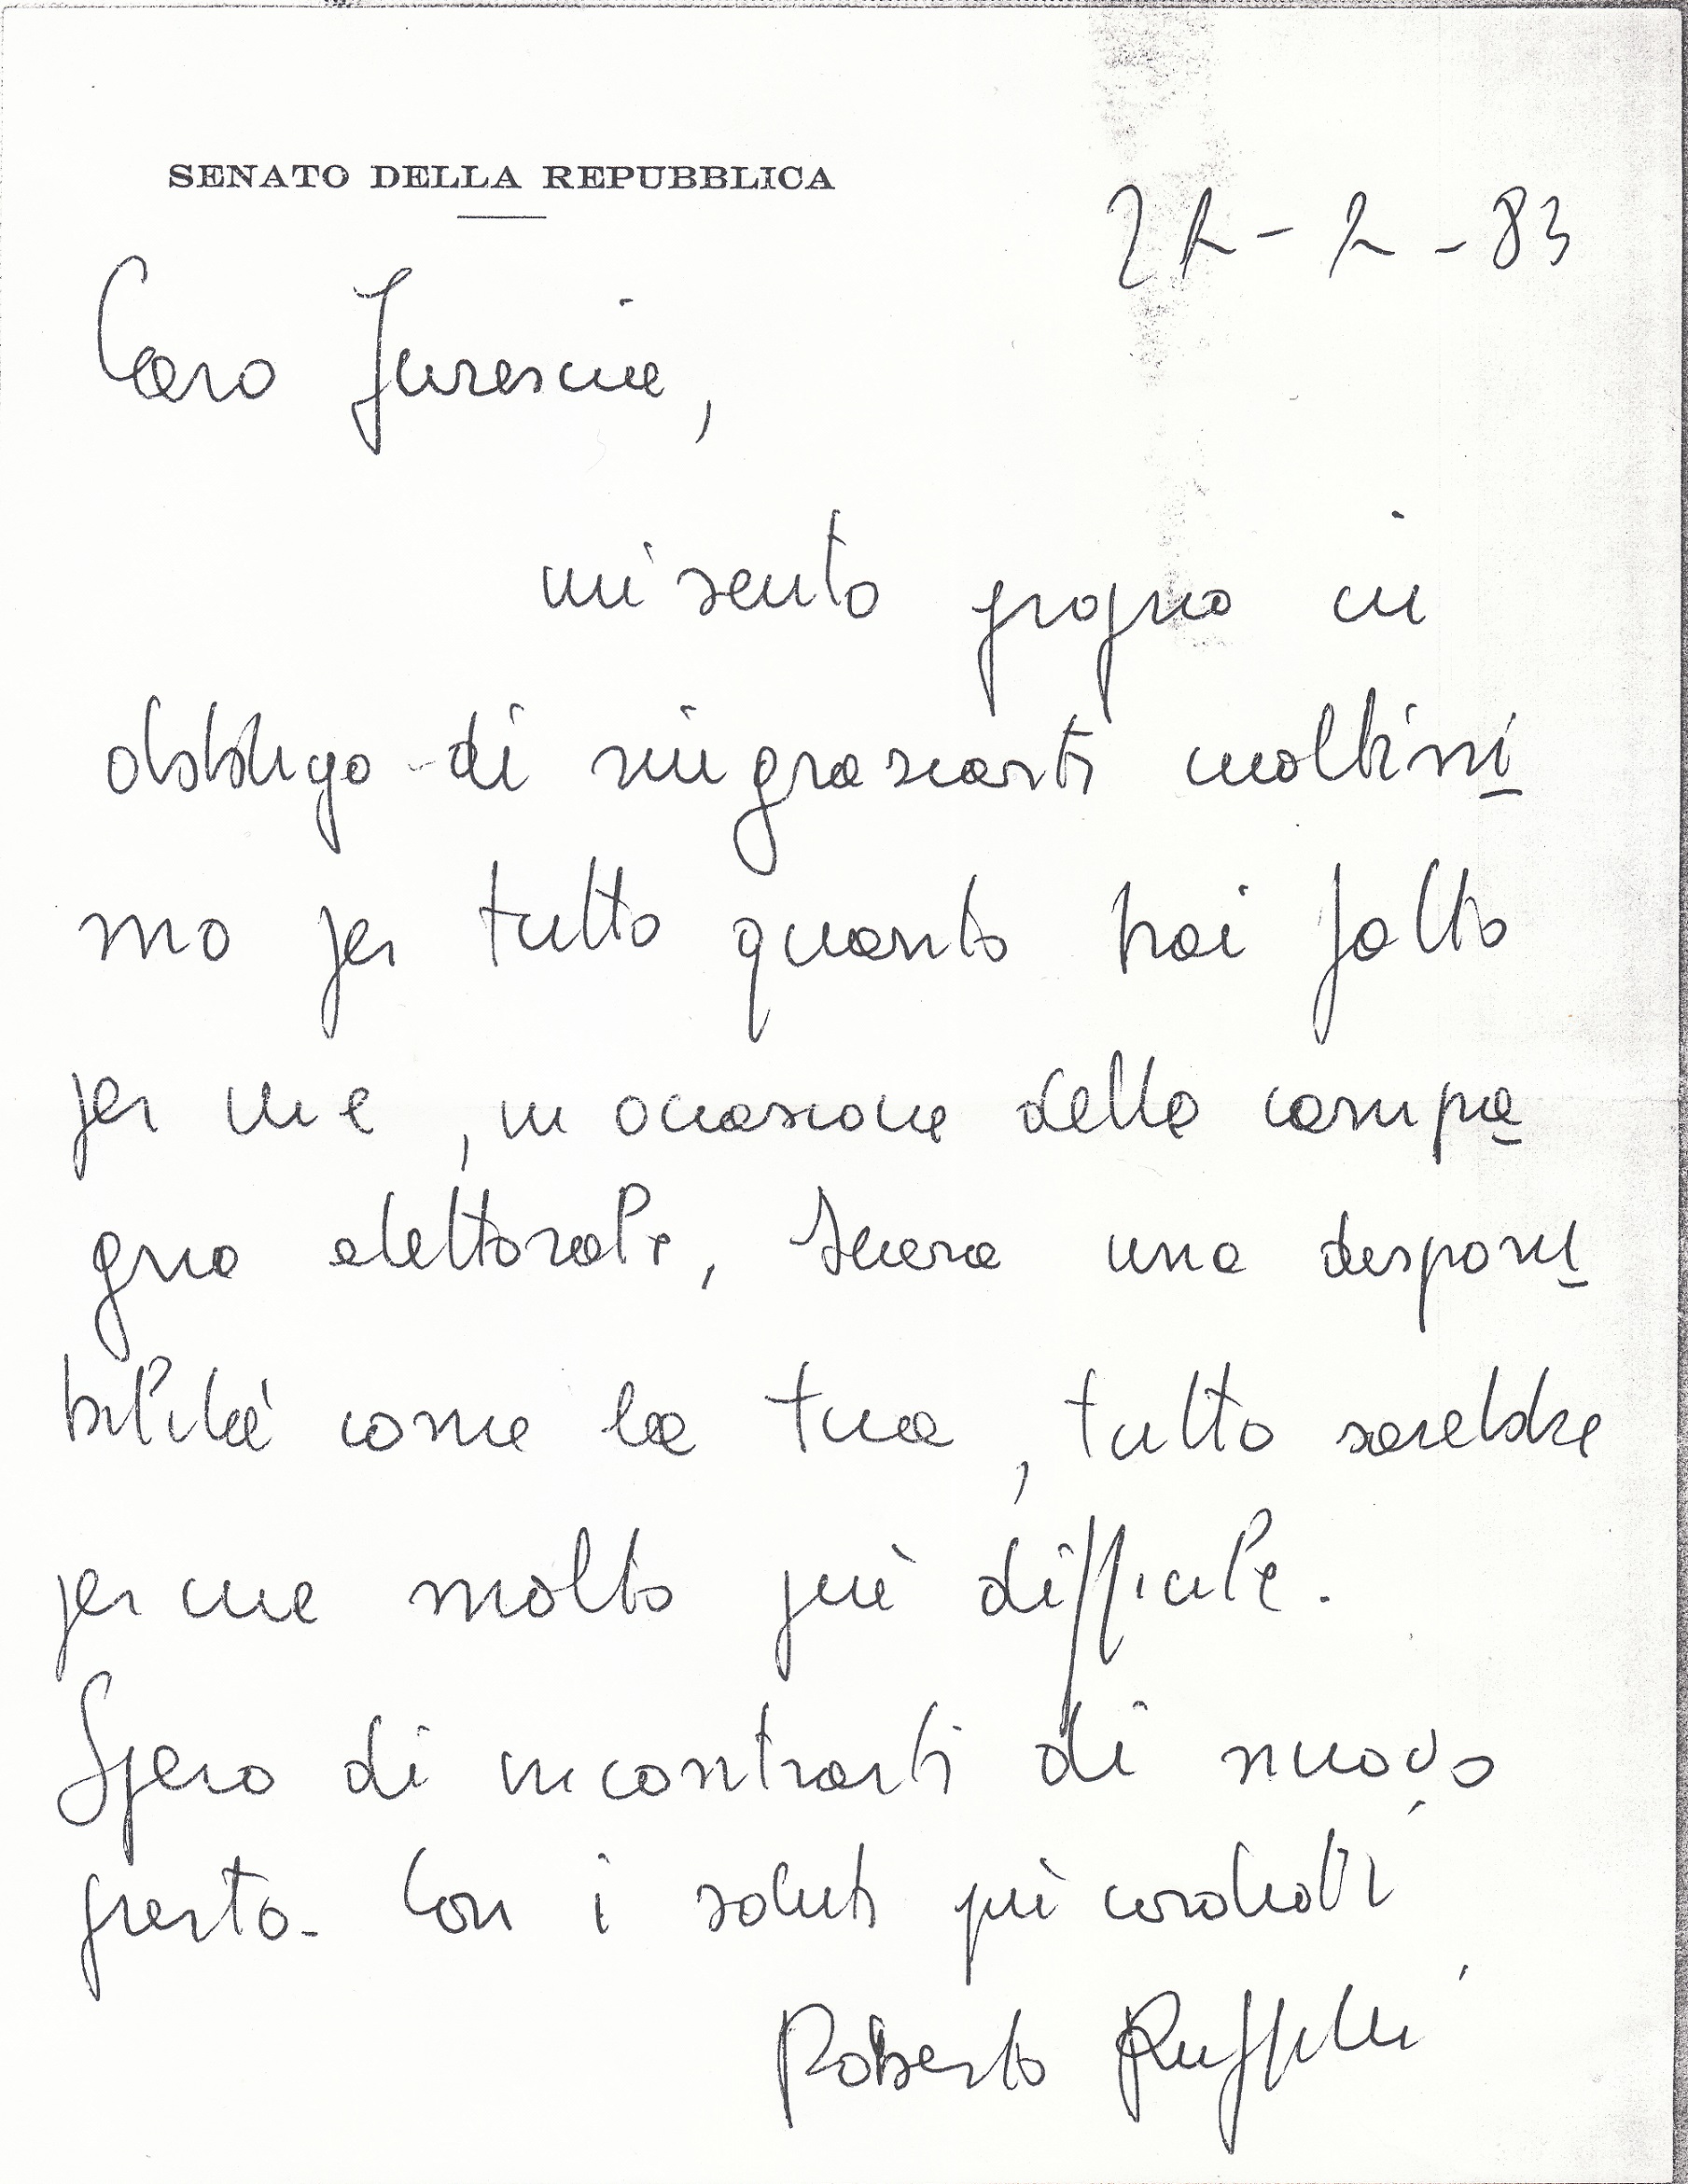 SENATO DELLA REPUBBLICA
Caro Jurescia,
mi sento proprio in
obbligo di ringraziarti moltissi
mo per tutto quanto hai fatto
per me, in occasione della campa
gna elettorale, Senza una disponi
bilità come la tua, tutto sarebbe
per me molto più difficile.
Spero di incontrarti di nuovo
presto. Con i saluti più cordiali
Roberto Ruffilli